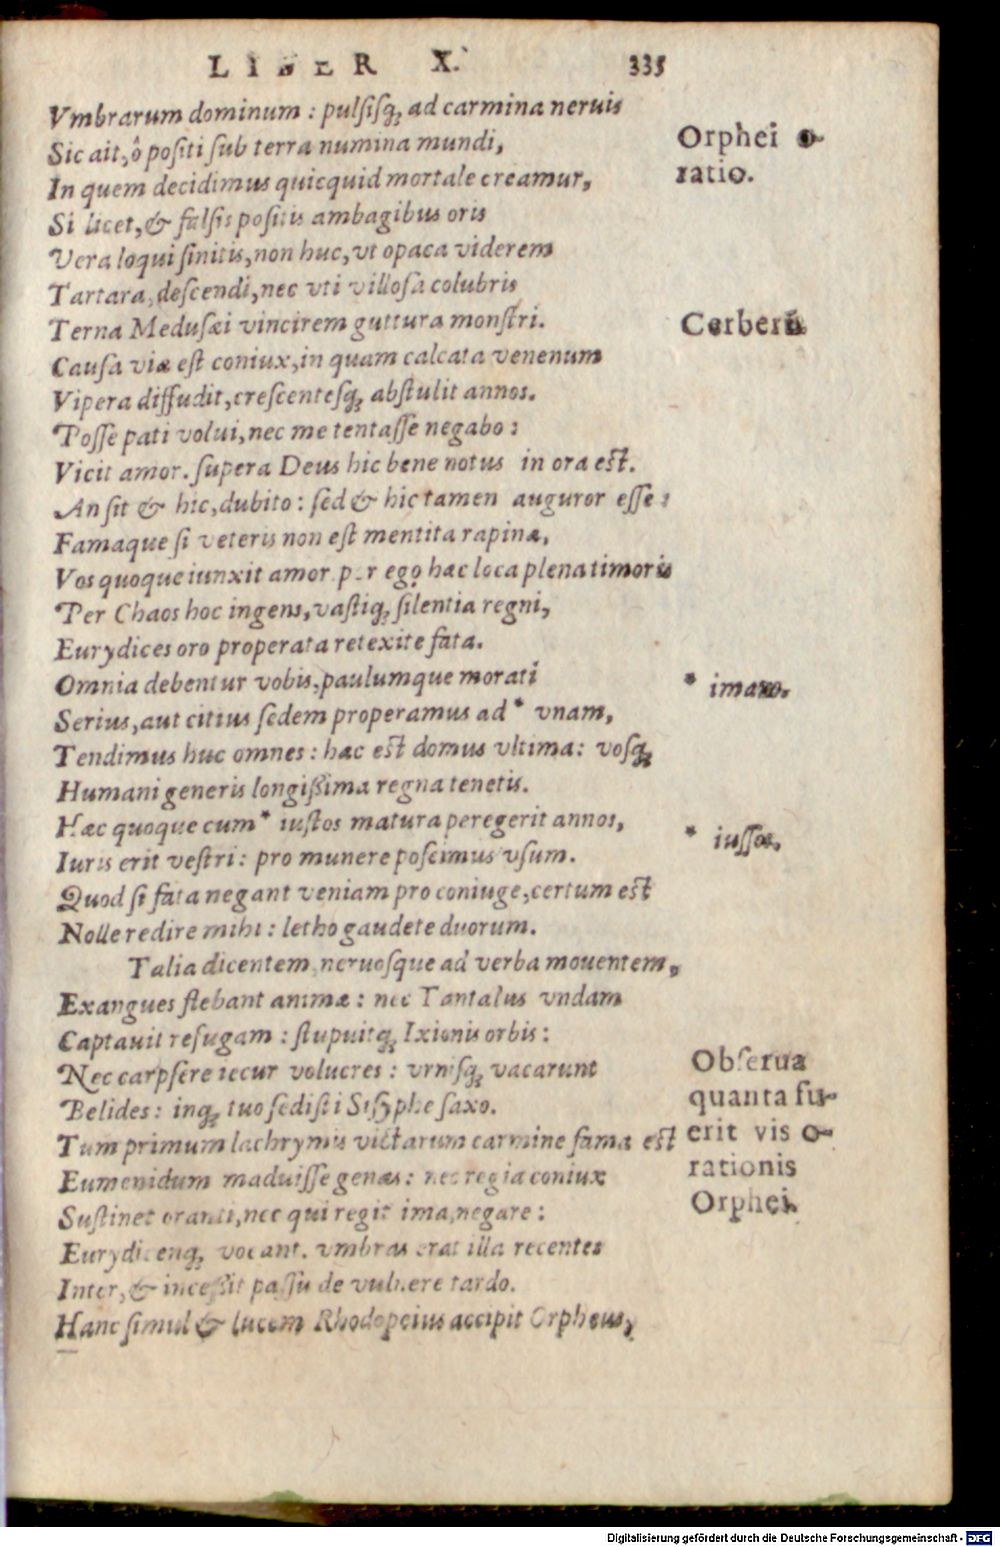 LIBER X. 335
Vmbrarum dominum : pulsisq́; ad carmina neruis
Sic ait, ô positi sub terra numina mundi,
In quem decidimus quicquid mortale creamur,
Si licet, & falsis positis ambagibus oris
Vera loqui sinitis, non huc, vt opaca viderem
Tartara, descendi, nec vti villosa colubris
Terna Medusæi vincirem guttura monstri.
Causa viæ est coniux, in quam calcata venenum
Vipera diffudit, crescentesq́; abstulit annos.
Posse pati volui, nec me tentasse negabo :
Vicit amor. supera Deus hic bene notus in ora est.
An sit & hic, dubito : sed & hic tamen auguror esse :
Famaque si veteris non est mentita rapinæ,
Vos quoque iunxit amor. per ego hæc loca plena timoris
Per Chaos hoc ingens, vastiq́; silentia regni,
Eurydices oro properata retexite fata.
Omnia debentur vobis, paulumque morati
Serius, aut citius sedem properamus ad * vnam,
Tendimus huc omnes : hæc est domus vltima : vosq́;
Humani generis longißima regna tenetis.
Hæc quoque cum * iustos matura peregerit annos,
Iuris erit vestri : pro munere poscimus vsum.
Quod si fata negant veniam pro coniuge, certum est
Nolle redire mihi : letho gaudete duorum.
Talia dicentem, neruosque ad verba mouentem,
Exangues flebant animæ : nec Tantalus vndam
Captauit refugam : stupuitq́; Ixionis orbis :
Nec carpsere iecur volucres : vrnisq́; vacarunt
Belides : inq́; tuo sedisti Sisyphe saxo.
Tum primum lachrymis victarum carmine fama est
Eumenidum maduisse genas : nec regia coniux
Sustinet oranti, nec qui regit ima, negare :
Eurydicenq́; vocant. vmbras erat illa recentes
Inter, & inceßit passu de vulnere tardo.
Hanc simul & lucem Rhodopeius accipit Orpheus,
Orphei o-
ratio.
Cerberū
* imaxo.
* iussos.
Obserua
quanta fu-
erit vis o-
rationis
Orphei.
Digitalisierung gefördert durch die Deutsche Forschungsgemeinschaft - DFG